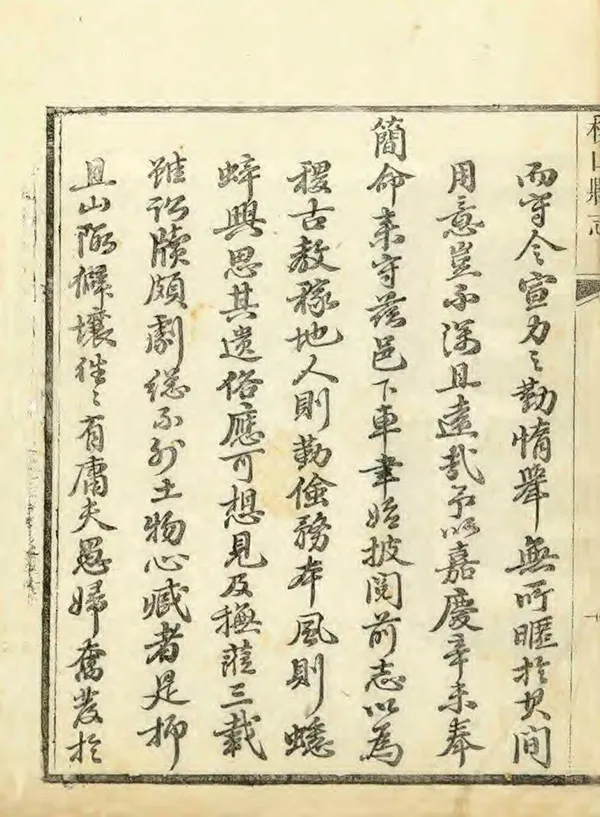 稷山縣志
而守令宣力之勤惰舉無所匿於其間
用意豈不深且遠哉予以嘉慶辛未奉
簡命來守茲邑下車聿始披閱前志以為
稷古教稼地人則勤儉務本風則蟋
蟀興思其遺俗應可想見及撫蒞三載
雖訟牘頗劇總不外土物心臧者是抑
且山陬僻壤往往有庸夫愚婦奮發於